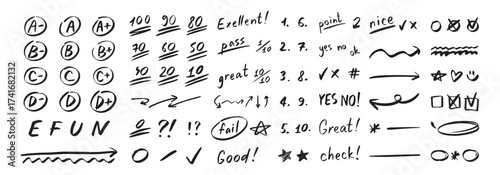 A- A A+ 100 90 80 Exellent! 1. 6. point 2 nice ✓ x
B- B B+ 70 60 50 pass 8/10 2. 7. yes no ok
C- C C+ 40 20 10 great 10/10 3. 8. ✓ x #
D- D D+ 4. 9. YES NO!
E F U N 0 ?! !? fail 5. 10. Great!
Good! check!
Adobe Stock | #1741682132